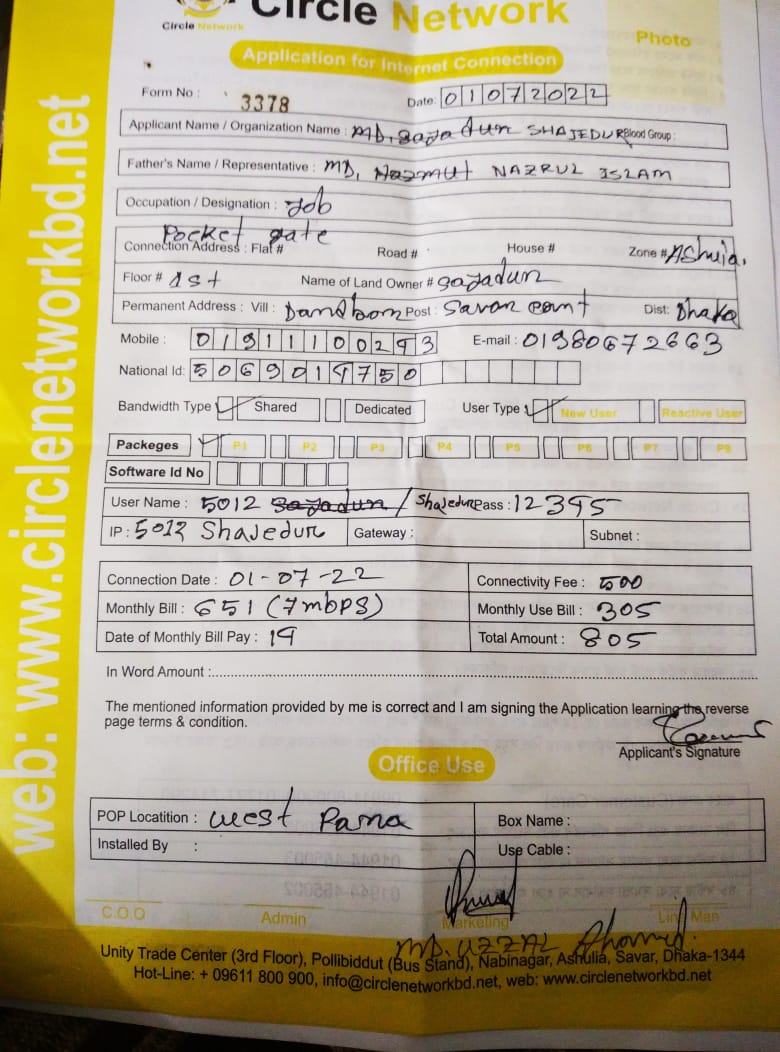 Circle Network
Circle Network
Photo
Application for Internet Connection
Form No : 3378 Date: 01072022
Applicant Name / Organization Name : MD, Sajadun SHAJEDUR Blood Group :
Father's Name / Representative : MD, Nazmut NAZRUL ISLAM
Occupation / Designation : Job
Pocket gate
Connection Address : Flat # Road # House # Zone # AShulia.
Floor # 1st Name of Land Owner # Sajadun
Permanent Address : Vill : Post : Savar cant Dist: Dhaka
Mobile : 01911100293 E-mail : 01980672663
National Id: 5069019750
Bandwidth Type Shared Dedicated User Type New User Reactive User
Packeges P1 P2 P3 P4 P5 P6 P7 P8
Software Id No
User Name : 5012 Sajadun / Shajedur Pass : 12395
IP : 5012 Shajedur Gateway : Subnet :
Connection Date : 01-07-22 Connectivity Fee : 500
Monthly Bill : 651 (7mbps) Monthly Use Bill : 305
Date of Monthly Bill Pay : 19 Total Amount : 805
In Word Amount :
The mentioned information provided by me is correct and I am signing the Application learning the reverse
page terms & condition.
Applicant's Signature
Office Use
POP Locatition : West Para Box Name :
Installed By : Use Cable :
C.O.O Admin Marketing Line Man
MD. UZZAL Ahamed.
Unity Trade Center (3rd Floor), Pollibiddut (Bus Stand), Nabinagar, Ashulia, Savar, Dhaka-1344
Hot-Line: + 09611 800 900, info@circlenetworkbd.net, web: www.circlenetworkbd.net
web: www.circlenetworkbd.net